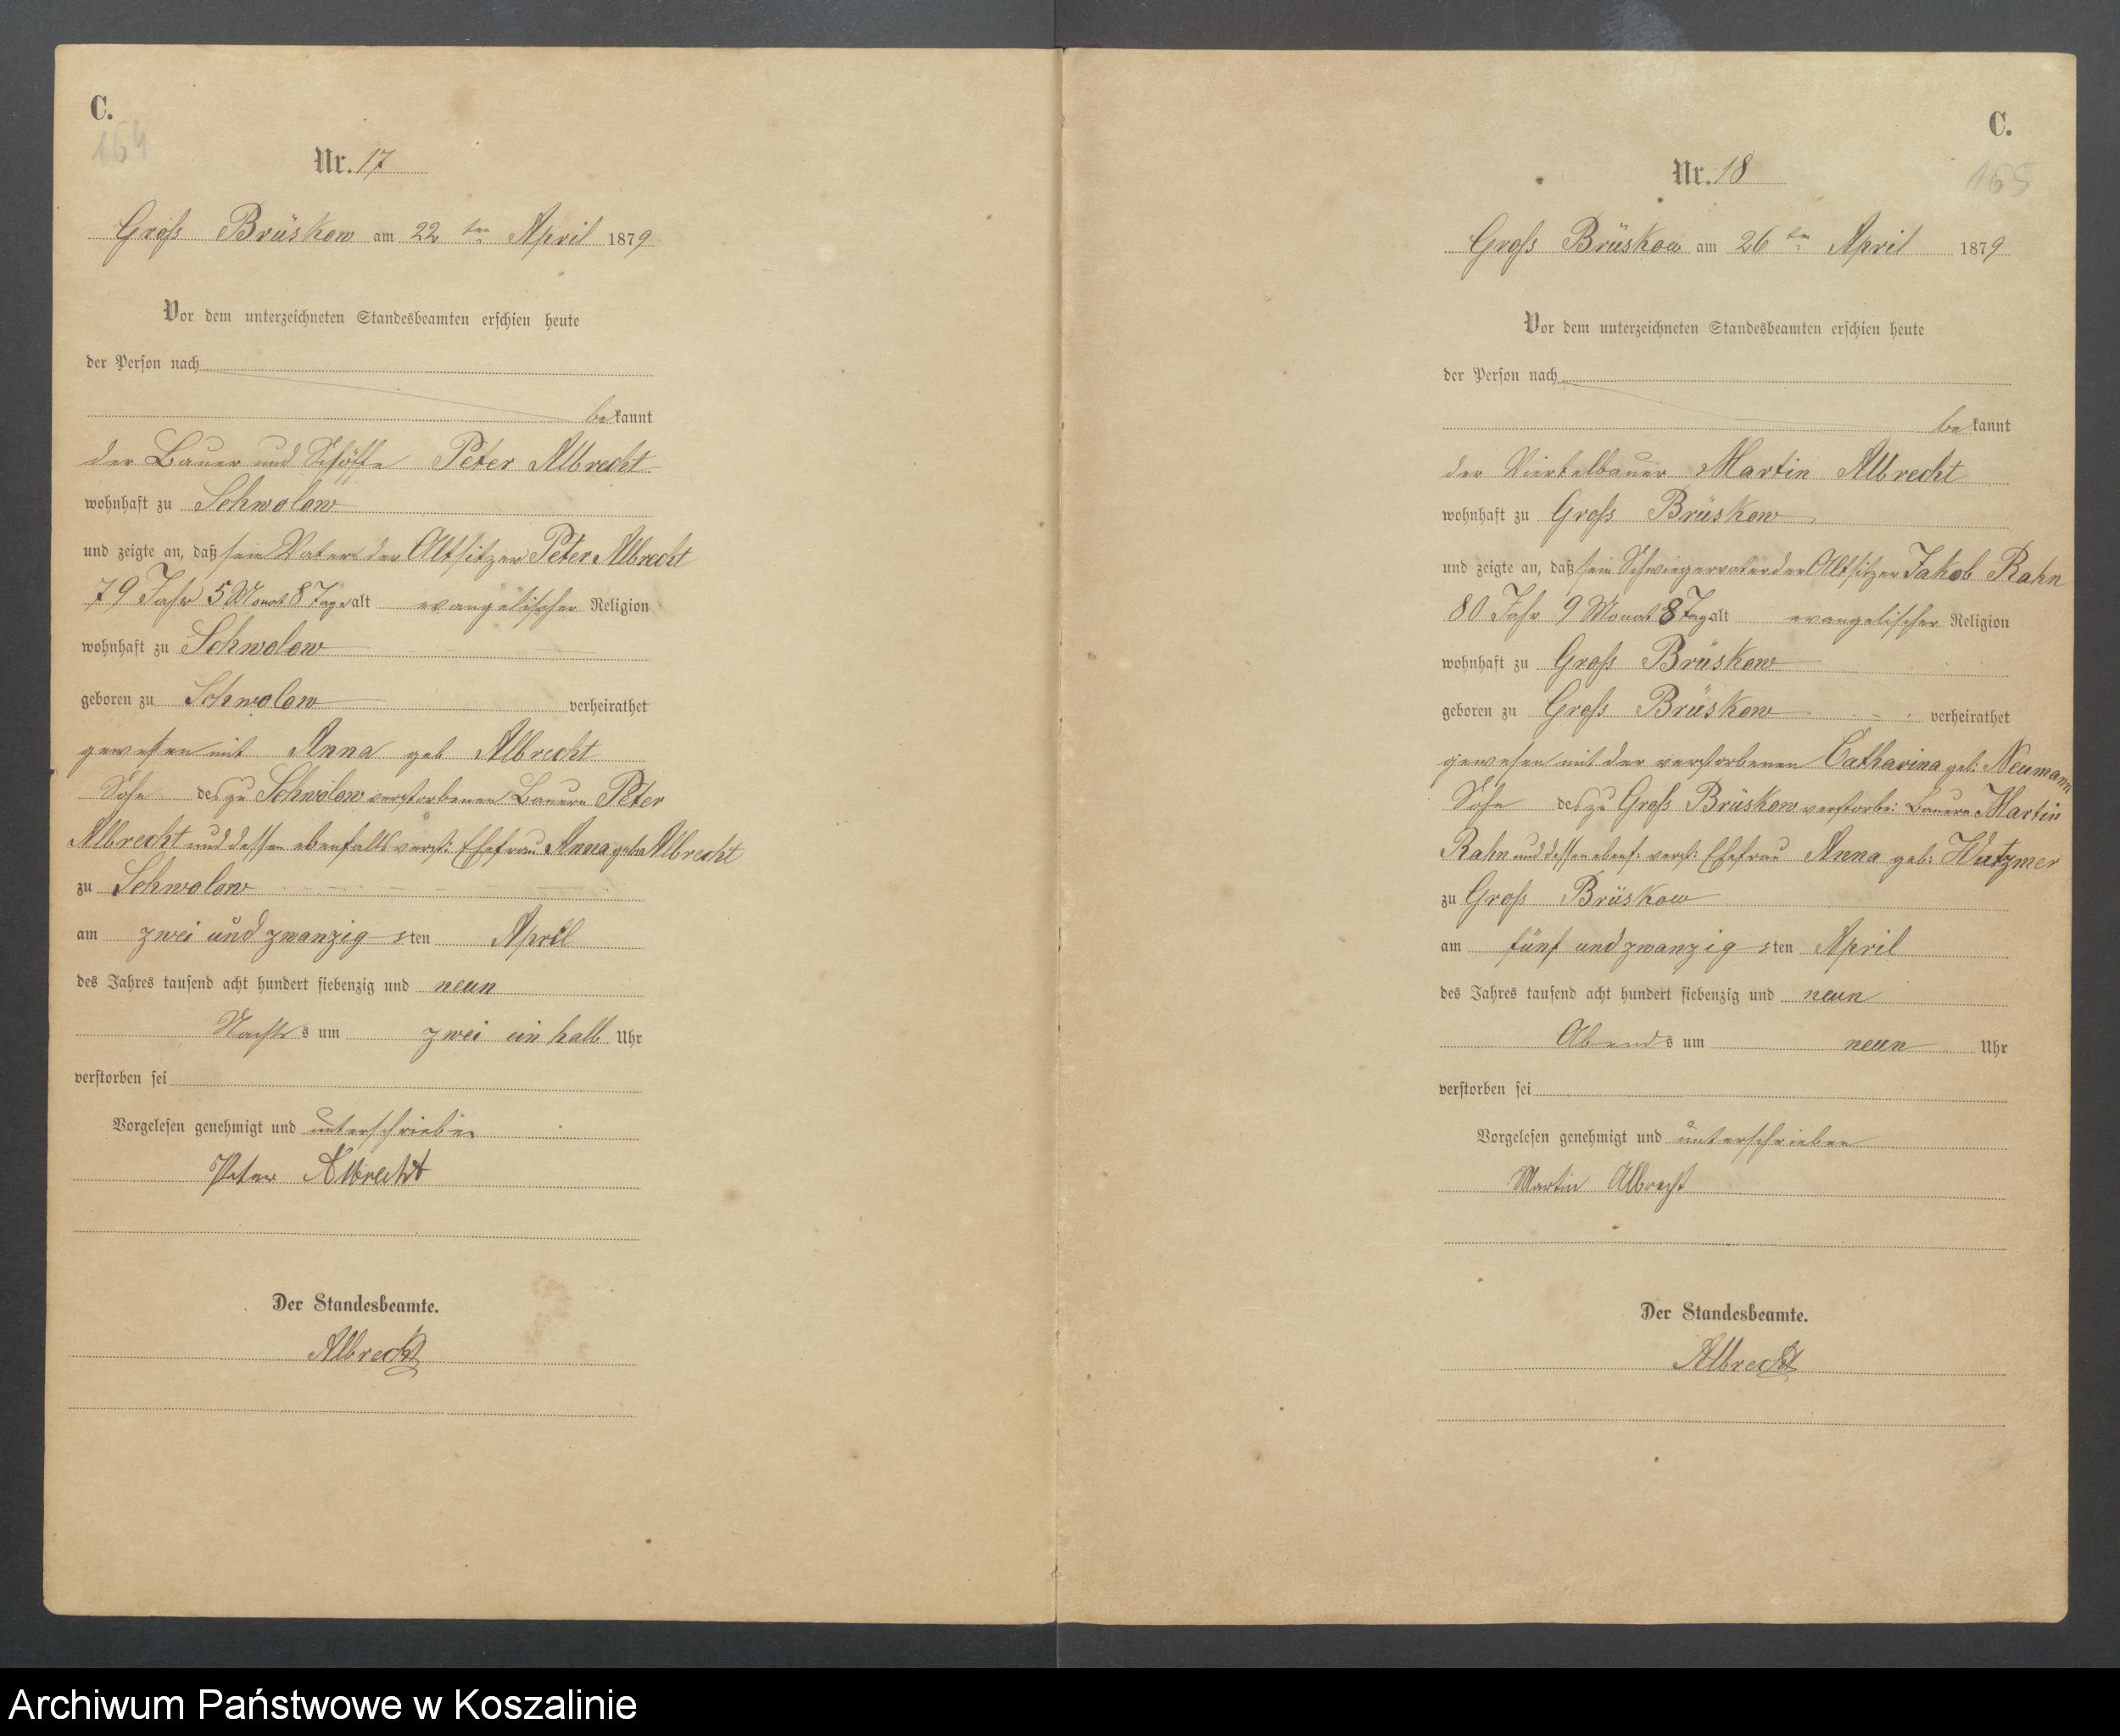 C.
164
Nr. 17
Groß Brüskow am 22 ten April 1879
Vor dem unterzeichneten Standesbeamten erschien heute
der Person nach
bekannt
der Bauer und Schöffe Peter Albrecht
wohnhaft zu Schwolow
und zeigte an, daß sein Vater der Altsitzer Peter Albrecht
79 Jahr 5 Monat 8 Tage alt evangelischer Religion
wohnhaft zu Schwolow
geboren zu Schwolow verheirathet
gewesen mit Anna geb Albrecht
Sohn des zu Schwolow verstorbenen Bauern Peter
Albrecht und dessen ebenfalls verst: Ehefrau Anna geb: Albrecht
zu Schwolow
am zwei und zwanzig sten April
des Jahres tausend acht hundert siebenzig und neun
Nachts um zwei ein halb Uhr
verstorben sei
Vorgelesen genehmigt und unterschrieben
Peter Albrecht
Der Standesbeamte.
Albrecht
C.
165
Nr. 18
Groß Brüskow am 26 ten April 1879
Vor dem unterzeichneten Standesbeamten erschien heute
der Person nach
bekannt
der Viertelbauer Martin Albrecht
wohnhaft zu Groß Brüskow
und zeigte an, daß sein Schwiegervater der Altsitzer Jakob Rahn
80 Jahr 9 Monat 8 Tag alt evangelischer Religion
wohnhaft zu Groß Brüskow
geboren zu Groß Brüskow verheirathet
gewesen mit der verstorbenen Catharina geb: Neumann
Sohn des zu Groß Brüskow verstorb: Bauern Martin
Rahn und dessen ebenf: verst: Ehefrau Anna geb: Wutzmer
zu Groß Brüskow
am fünf und zwanzig sten April
des Jahres tausend acht hundert siebenzig und neun
Abends um neun Uhr
verstorben sei
Vorgelesen genehmigt und unterschrieben
Martin Albrecht
Der Standesbeamte.
Albrecht
Archiwum Państwowe w Koszalinie